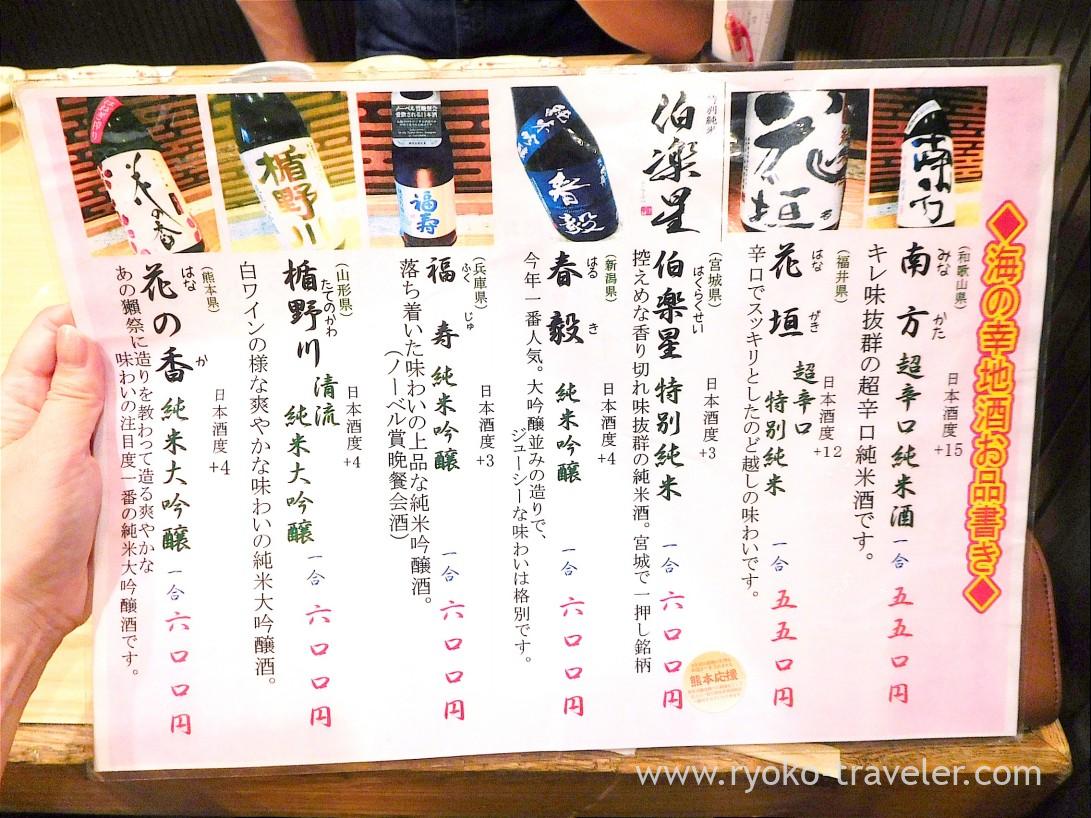 ◆海の幸地酒お品書き◆
(和歌山県)
みな かた
南方 超辛口純米酒 一合 五五〇円
日本酒度 +15
キレ味抜群の超辛口純米酒です。
(福井県)
はな がき
花垣 超辛口 特別純米 一合 五五〇円
日本酒度 +12
辛口でスッキリとしたのど越しの味わいです。
(宮城県)
はくらくせい
伯楽星 特別純米 一合 六〇〇円
日本酒度 +3
控えめな香り切れ味抜群の純米酒。宮城で一押し銘柄
(新潟県)
はる き
春毅 純米吟醸 一合 六〇〇円
日本酒度 +4
今年一番人気。大吟醸並みの造りで、
ジューシーな味わいは格別です。
(兵庫県)
ふく じゅ
福寿 純米吟醸 一合 六〇〇円
日本酒度 +3
落ち着いた味わいの上品な純米吟醸酒。
(ノーベル賞晩餐会酒)
(山形県)
たてのがわ
楯野川 清流 純米大吟醸 一合 六〇〇円
日本酒度 +4
白ワインの様な爽やかな味わいの純米大吟醸酒。
(熊本県)
はな か
花の香 純米大吟醸 一合 六〇〇円
日本酒度 +4
あの獺祭に造りを教わって造る爽やかな
味わいの注目度一番の純米大吟醸酒です。
南方
花垣
特別純米
伯楽星
春毅
福寿
楯野川
花の香
熊本応援
www.ryoko-traveler.com